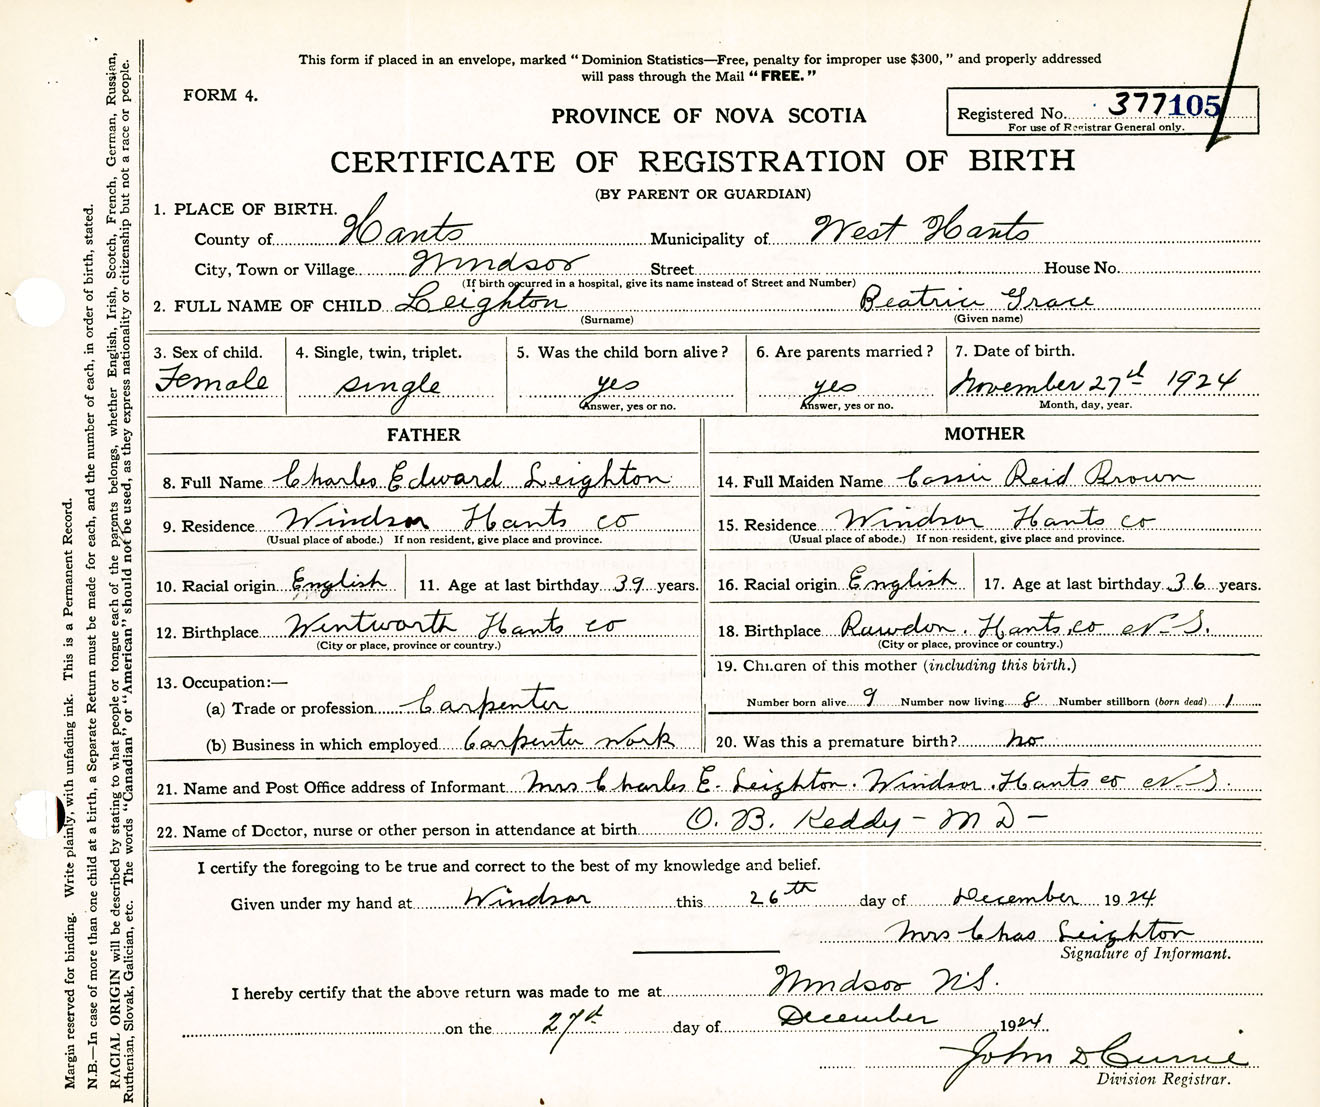 This form if placed in an envelope, marked "Dominion Statistics—Free, penalty for improper use $300," and properly addressed
will pass through the Mail "FREE."
FORM 4.
PROVINCE OF NOVA SCOTIA
Registered No. 377105
For use of Registrar General only.
CERTIFICATE OF REGISTRATION OF BIRTH
(BY PARENT OR GUARDIAN)
1. PLACE OF BIRTH.
County of Hants Municipality of West Hants
City, Town or Village Windsor Street House No.
(If birth occurred in a hospital, give its name instead of Street and Number)
2. FULL NAME OF CHILD Leighton Beatrice Grace
(Surname) (Given name)
3. Sex of child. 4. Single, twin, triplet. 5. Was the child born alive? 6. Are parents married? 7. Date of birth.
Female single yes yes November 27d 1924
Answer, yes or no. Answer, yes or no. Month, day, year.
FATHER MOTHER
8. Full Name Charles Edward Leighton 14. Full Maiden Name Cassie Reid Brown
9. Residence Windsor Hants co 15. Residence Windsor Hants co
(Usual place of abode.) If non resident, give place and province. (Usual place of abode.) If non-resident, give place and province.
10. Racial origin English 11. Age at last birthday 39 years. 16. Racial origin English 17. Age at last birthday 36 years.
12. Birthplace Wentworth Hants co 18. Birthplace Rawdon. Hants co N.S.
(City or place, province or country.) (City or place, province or country.)
19. Children of this mother (including this birth.)
13. Occupation:—
(a) Trade or profession Carpenter Number born alive 9 Number now living 8 Number stillborn (born dead) 1
(b) Business in which employed Carpenter work 20. Was this a premature birth? no
21. Name and Post Office address of Informant Mrs Charles E. Leighton. Windsor. Hants co N.S.
22. Name of Doctor, nurse or other person in attendance at birth O. B. Keddy - M D -
I certify the foregoing to be true and correct to the best of my knowledge and belief.
Given under my hand at Windsor this 26th day of December 1924
Mrs Chas Leighton
Signature of Informant.
I hereby certify that the above return was made to me at Windsor N.S.
on the 27d day of December 1924
John D Currie
Division Registrar.
Margin reserved for binding. Write plainly, with unfading ink. This is a Permanent Record.
N.B.—In case of more than one child at a birth, a Separate Return must be made for each, and the number of each, in order of birth, stated.
RACIAL ORIGIN will be described by stating to what people or tongue each of the parents belongs, whether English, Irish, Scotch, French, German, Russian,
Ruthenian, Slovak, Galician, etc. The words "Canadian" or "American" should not be used, as they express nationality or citizenship but not a race or people.